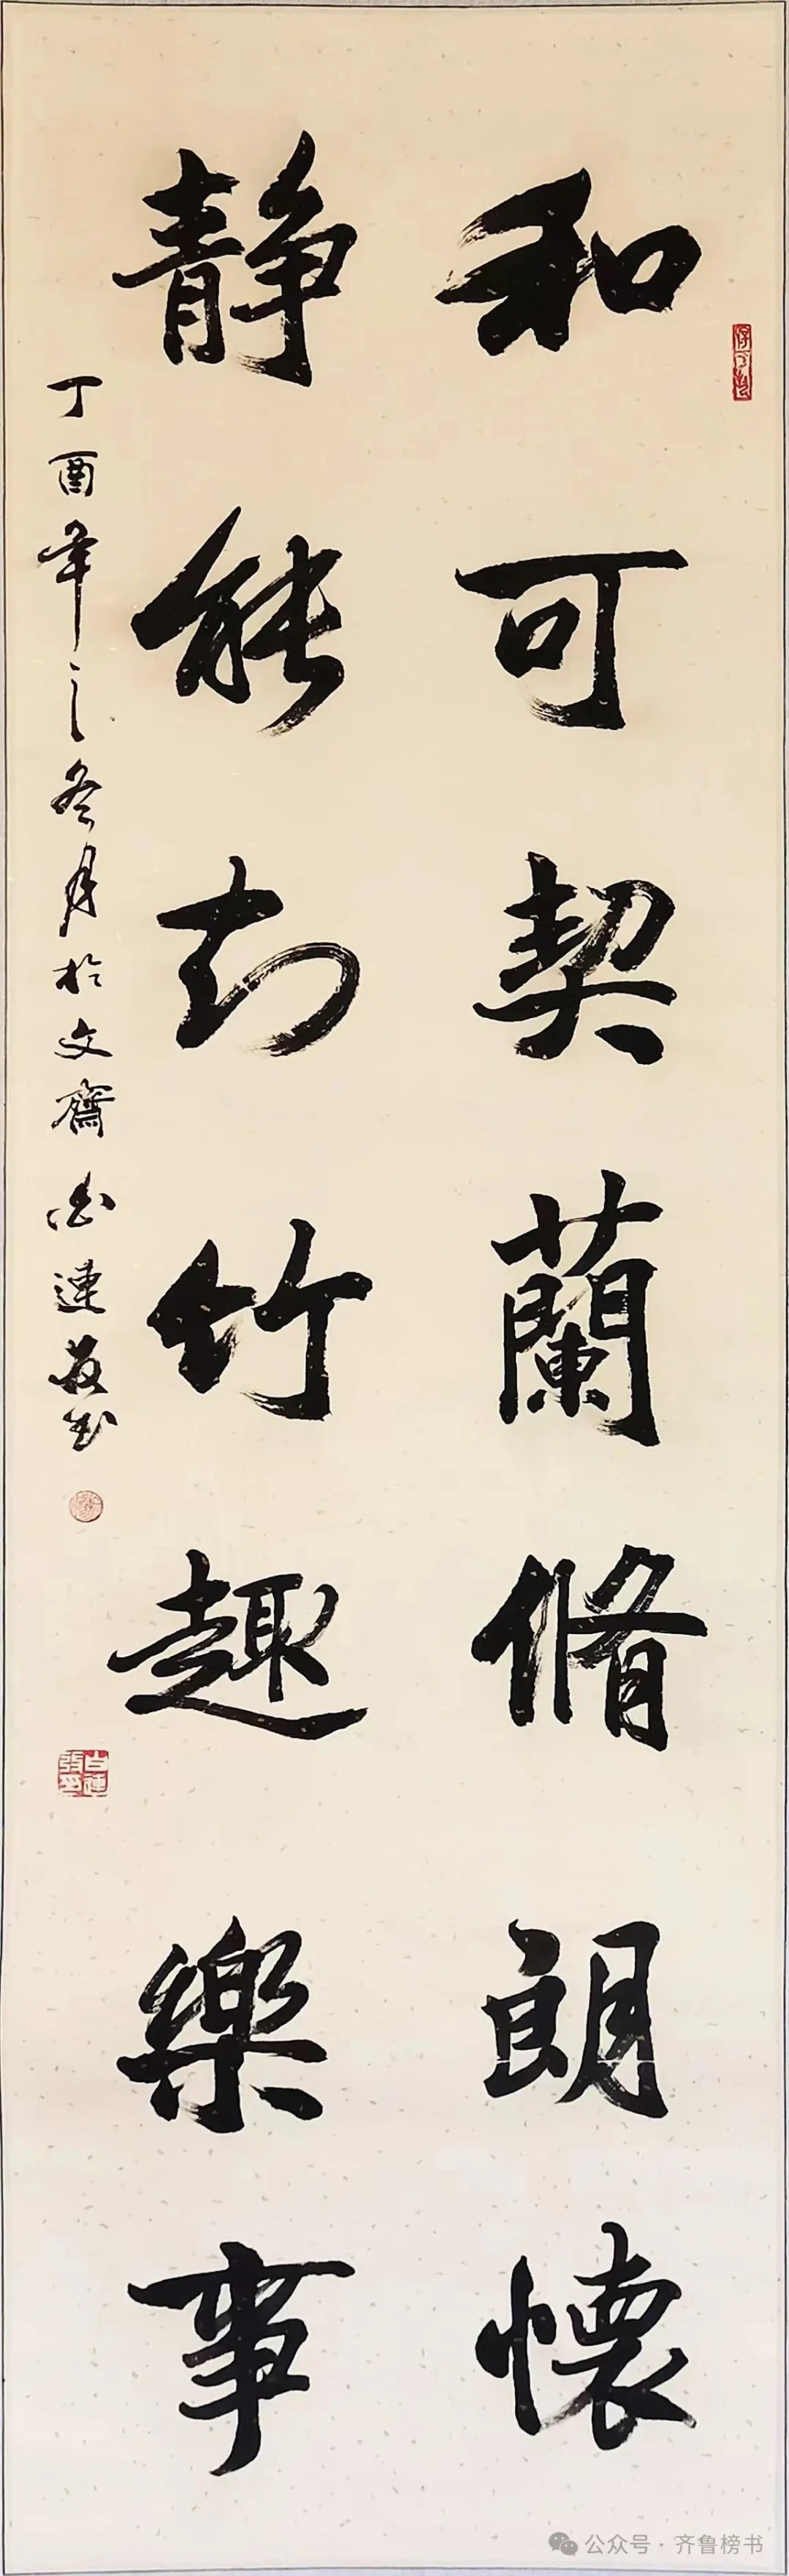 和可契蘭脩朗懷
静能封竹趣樂事
丁酉年之冬月於文齋白連敬書
公众号·齐鲁榜书